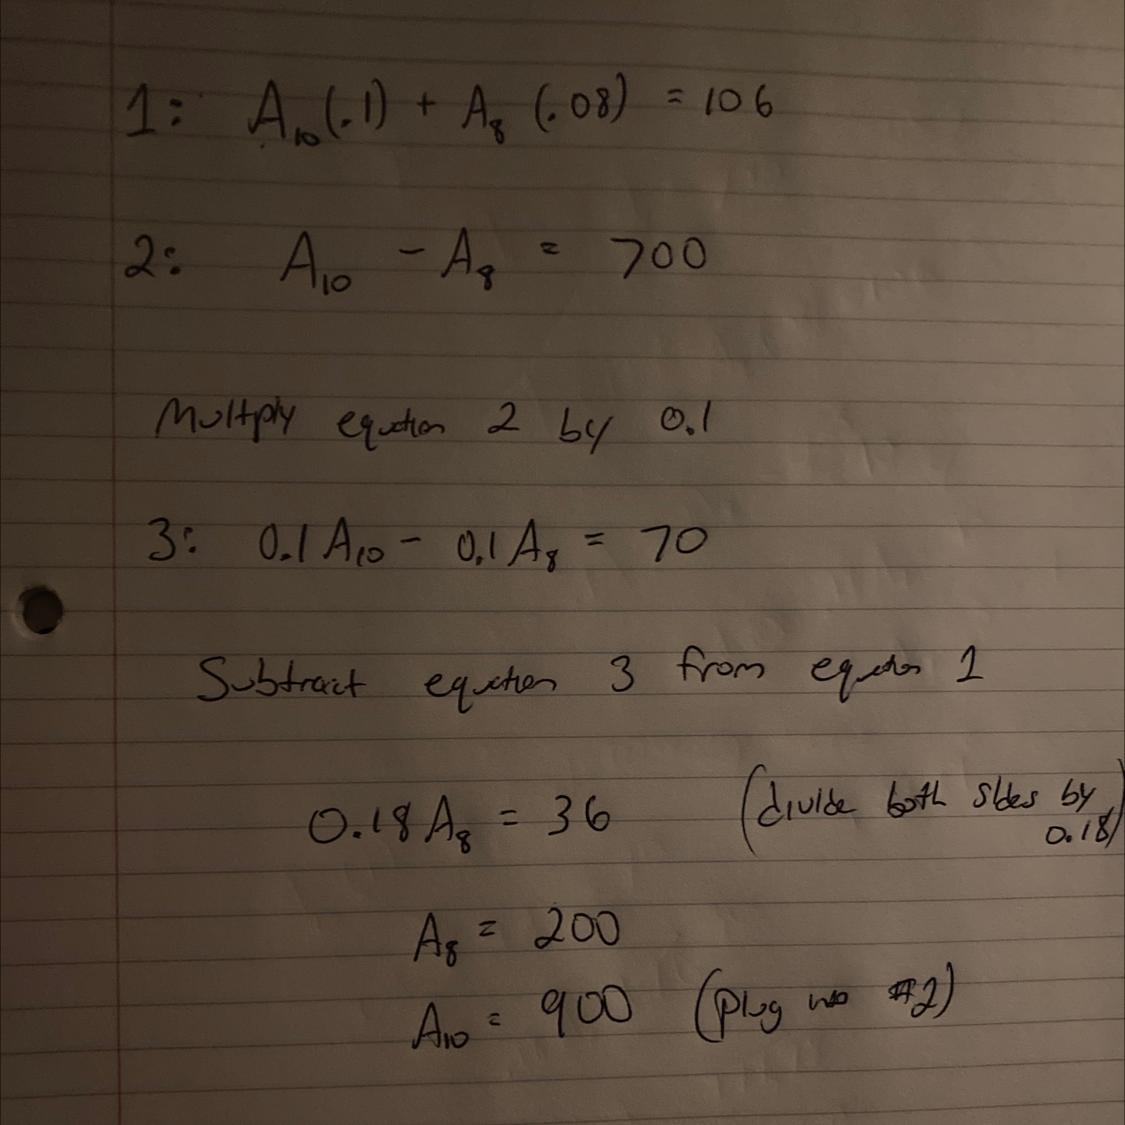 1: A₁₀(.1) + A₈(.08) = 106
2: A₁₀ - A₈ = 700
Multiply equation 2 by 0.1
3: 0.1A₁₀ - 0.1A₈ = 70
Subtract equation 3 from equation 1
0.18A₈ = 36 (divide both sides by
0.18)
A₈ = 200
A₁₀ = 900 (plug into #2)